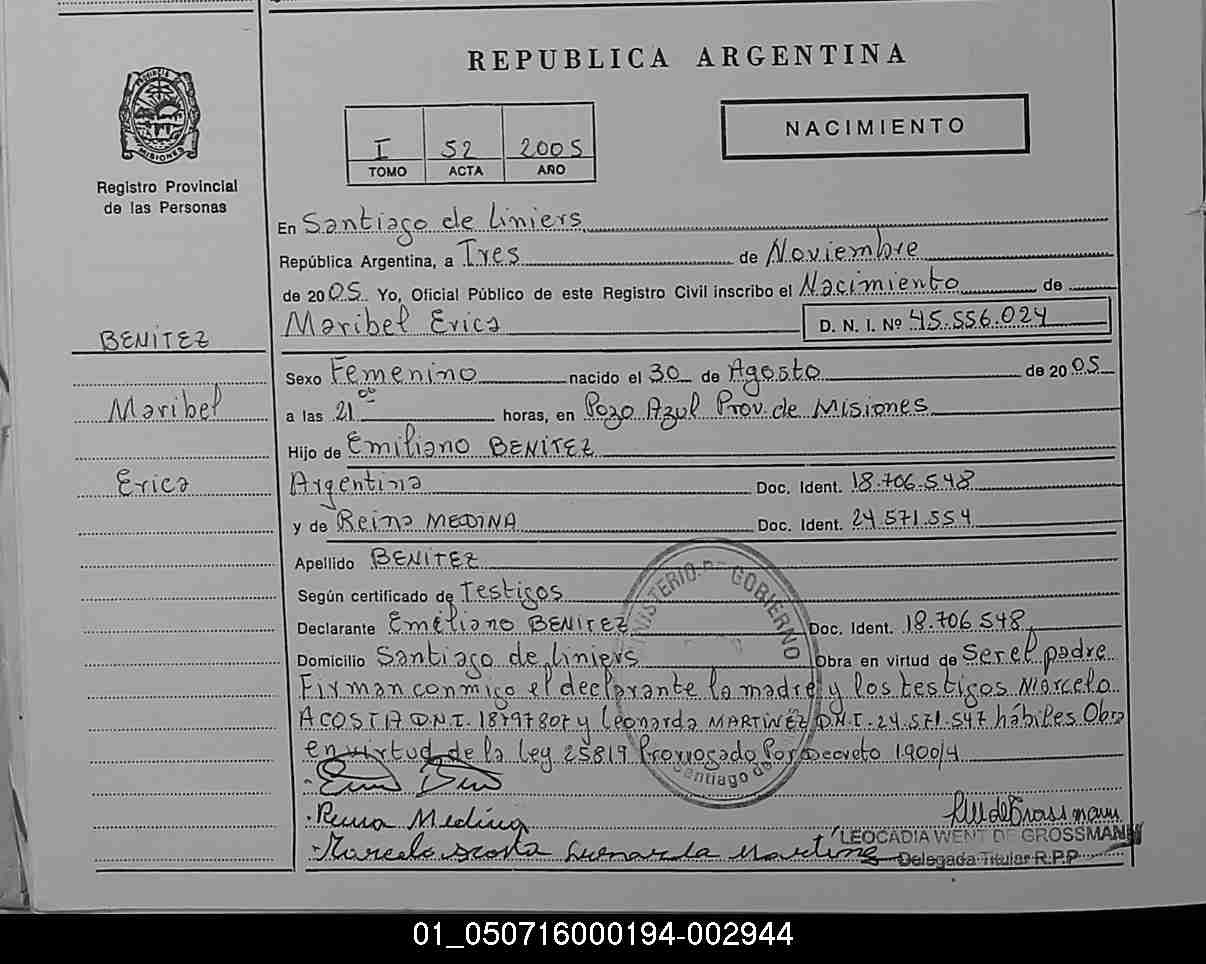 REPUBLICA ARGENTINA
PROVINCIA DE MISIONES
Registro Provincial
de las Personas
I 52 2005
TOMO ACTA AÑO
NACIMIENTO
En Santiago de Liniers
República Argentina, a Tres de Noviembre
de 2005 Yo, Oficial Público de este Registro Civil inscribo el Nacimiento de
Maribel Erica D. N. I. Nº 45.556.024
BENITEZ
Sexo Femenino nacido el 30 de Agosto de 2005
Maribel
a las 21 oo horas, en Pozo Azul Prov. de Misiones
Hijo de Emiliano BENITEZ
Erica
Argentina Doc. Ident. 18.706.548
y de Reina MEDINA Doc. Ident. 24.571.554
Apellido BENITEZ
Según certificado de Testigos
Declarante Emiliano BENITEZ Doc. Ident. 18.706.548
Domicilio Santiago de Liniers Obra en virtud de Ser el padre
Firman conmigo el declarante la madre y los testigos Marcelo
ACOSTA D.N.I. 18797807 y Leonarda MARTINEZ D.N.I. 24.571.547 hábiles Obra
en virtud de la Ley 25819 Prorrogado Por Decreto 1.900/4
MINISTERIO DE GOBIERNO
Santiago de
Reina Medina
Marcelo Acosta Leonarda Martinez
LM de Grossmann
LEOCADIA WENT DE GROSSMANN
Delegada Titular R.P.P
01_050716000194-002944